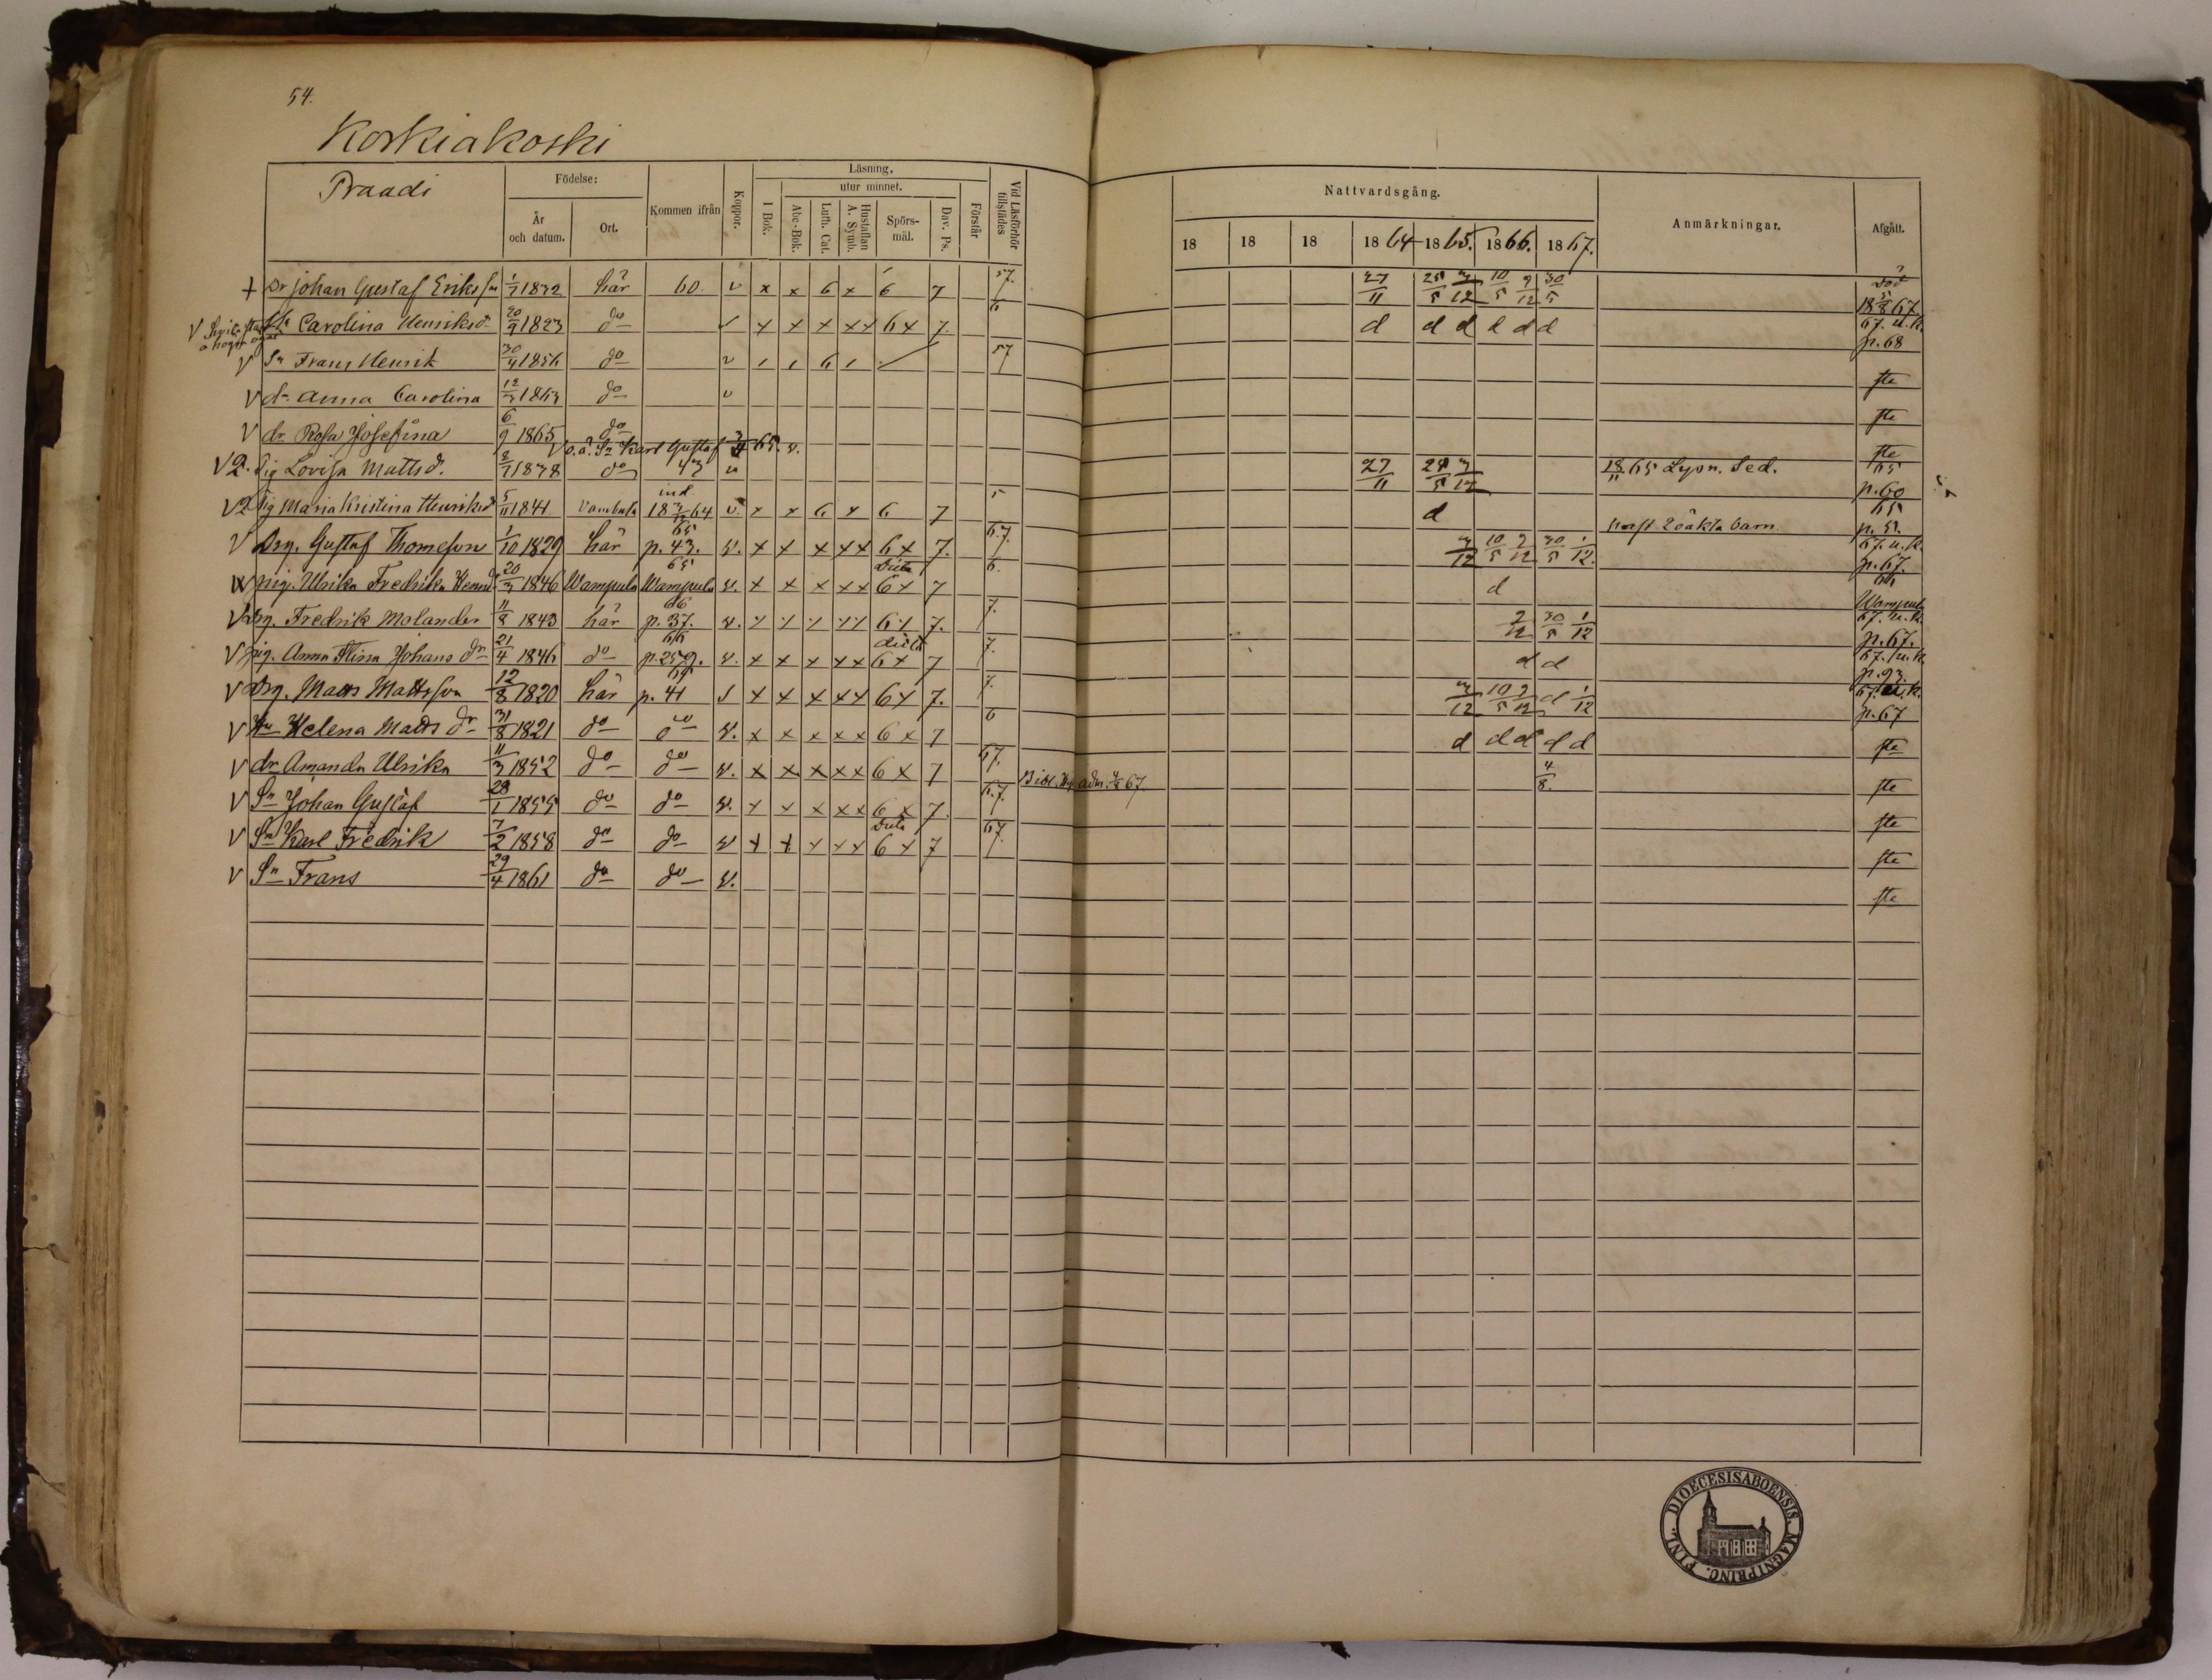 54.
Korkiakoski
Praadi
Födelse:
År och datum.
Ort.
Kommen ifrån
Koppor.
Läsning.
I Bok.
utur minnet.
Abc-Bok.
Luth. Cat.
Hustaflan A. Symb.
Spörsmål.
Dav. Ps.
Förstår
Vid Läsförhör tillstädes
Nattvardsgång.
18 18 18 1864 1865. 1866. 1867.
Anmärkningar.
Afgått.
+ Dr Johan Gustaf Eriksson 1/7 1832 här 60. v x x 6 x 6 7 57. 27/11 25/5 3/12 10/5 9/12 30/5 död 18 5/8 67
V Carolina Henriksd 20/9 1823 do v x x x xx 6x 7. 6 d d d d d d 67. u.k. p.68
V Sn Frans Henrik 30/4 1856 do v 6 57 ste
V dr Anna Carolina 12/3 1863 do v ste
V dr Rosa Josefina 6/9 1865 do ste
V o.ä. Sn Karl Gustaf 65. v.
V 2. Pig Lovisa Mattsd. 8/7 1838 do 43 v 27/11 3/12 18/11 65 Lysn. Sed. 65 p.60
V 2 Pig Maria Kristina Henriksd 5/11 1841 Vambula ind. 64 v. x x 6 x 6 7 5 d haft 2 oäkta barn 65 p.51
V Drg. Gustaf Thomeson 1/10 1829 här 65 p.43. v. x x x xx 6x 7. 6.7. 3/12 10/5 9/12 30/5 1/12. 67. u.k. p.67.
pig. Ulrika Fredrika 20/3 1846 Wampula 65 Wampula v. x x x xx 6x 7 6. d 66 Wampula
V Drg. Fredrik Molander 11/8 1843 här 66 p.37. v. 7. 7. 9/12 30/5 1/12 67. u.k. p.67.
V pig. Anna Johans dr 21/4 1846 do 66 p.259. v. x x x xx 6x 7 7. d d 67. u.k. p.93.
V Drg. Matts Mattsson 12/8 1820 här 65 p. 41 x x x xx 6x 7. 7. 3/12 10/5 9/12 d 1/12 67. u.k. p.67
V Hu Helena Matts dr 31/8 1821 do do v. x x x xx 6 x 7 6 d d d d d ste
V dr Amanda Ulrika 11/3 1852 do do v. x x x xx 6 x 7 67. adm. 4/8 67. 4/8. ste
V Sn Johan Gustaf 28/1 1855 do do v. x x x xx 6 x 7. 6.7. ste
V Sn Karl Fredrik 7/2 1858 do do v x x x xx 6 x 7 67. ste
V Sn Frans 29/4 1861 do do v. ste
DIOECESIS ABOENSIS. MAGNI PRINC. FINL.